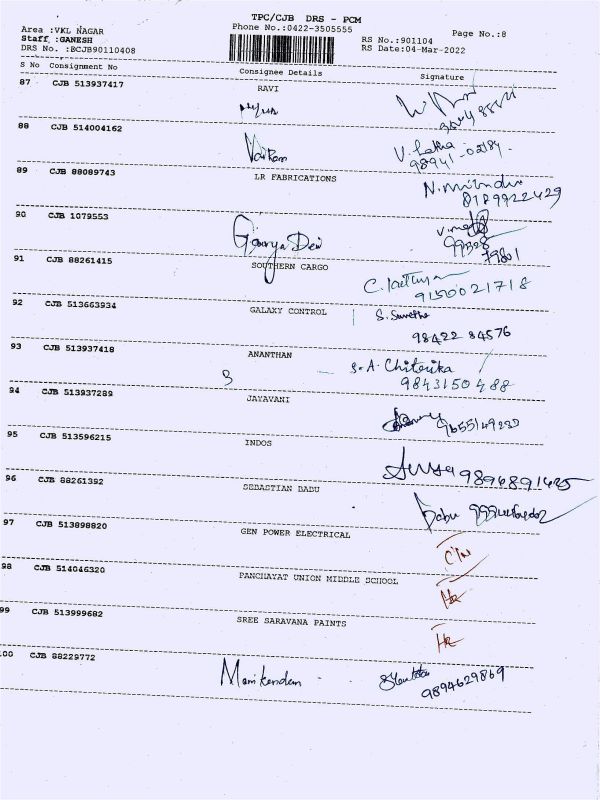 TPC/CJB DRS - PCM
Area :VKL NAGAR
Phone No.:0422-3505555
Page No.:8
Staff :GANESH
RS No.:901104
DRS No. :BCJB90110408
RS Date:04-Mar-2022
S No Consignment No Consignee Details Signature
87 CJB 513937417 RAVI
88 CJB 514004162
V. Latha
98941-02184.
89 CJB 88089743 LR FABRICATIONS
8189922429
90 CJB 1079553
Gowrya Devi
99328
79801
91 CJB 88261415 SOUTHERN CARGO
9150021718
92 CJB 513663934 GALAXY CONTROL
S. Swetha
98422 84576
93 CJB 513937418 ANANTHAN
S.A. Chitrika
9843150488
94 CJB 513937289 JAYAVANI
9655149232
95 CJB 513596215 INDOS
96 CJB 88261392 SEBASTIAN BABU
Babu
97 CJB 513898820 GEN POWER ELECTRICAL
98 CJB 514046320 PANCHAYAT UNION MIDDLE SCHOOL
99 CJB 513999682 SREE SARAVANA PAINTS
100 CJB 88229772
Manikandan
9894629869